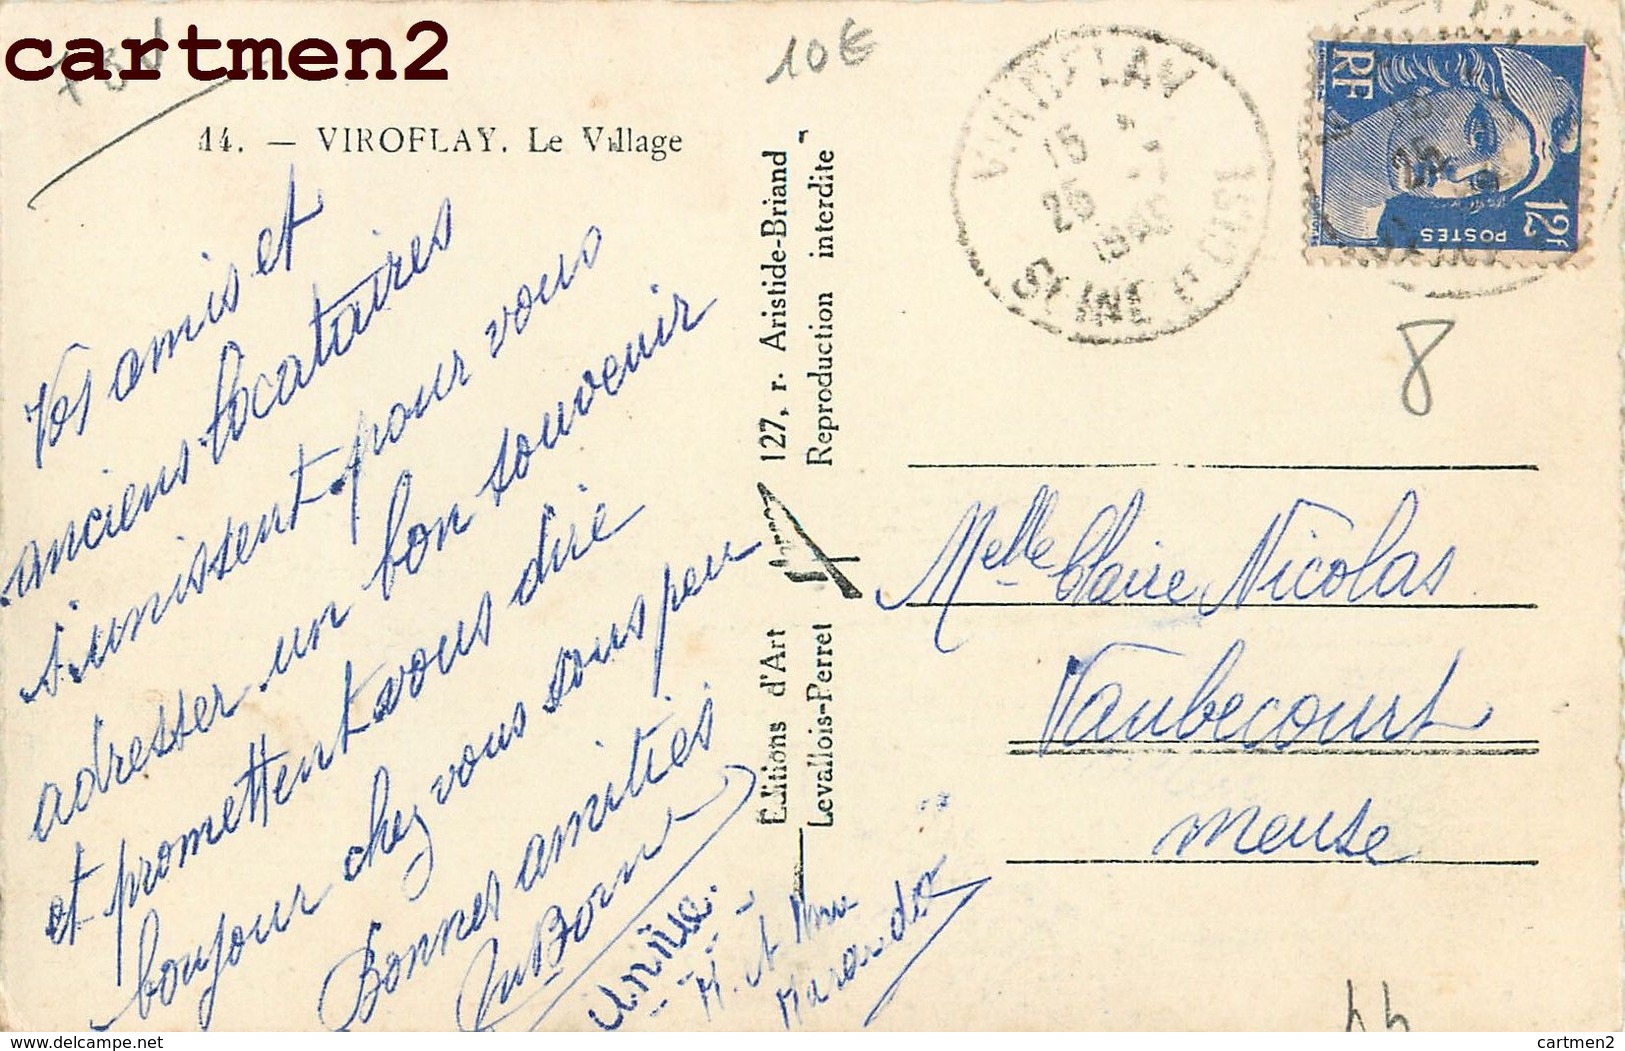 cartmen2
10€
14. — VIROFLAY. Le Village
Vos amis et
anciens locataires
s'unissent pour vous
adresser un bon souvenir
et promettent vous dire
boujour chez vous sous peu
Bonnes amitiés
Born
M. et Mme
Editions d'Art
127, r. Aristide-Briand
Levallois-Perret
Reproduction interdite
VIROFLAY
15
25
SEINE
RF
12f
POSTES
8
Melle Claire Nicolas
Vaubecourt
Meuse
delcampe.net
cartmen2